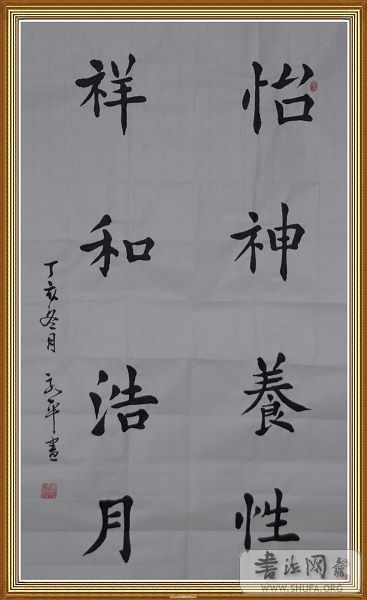 怡神養性
祥和浩月
丁亥冬月 永平書
書法网
WWW.SHUFA.ORG